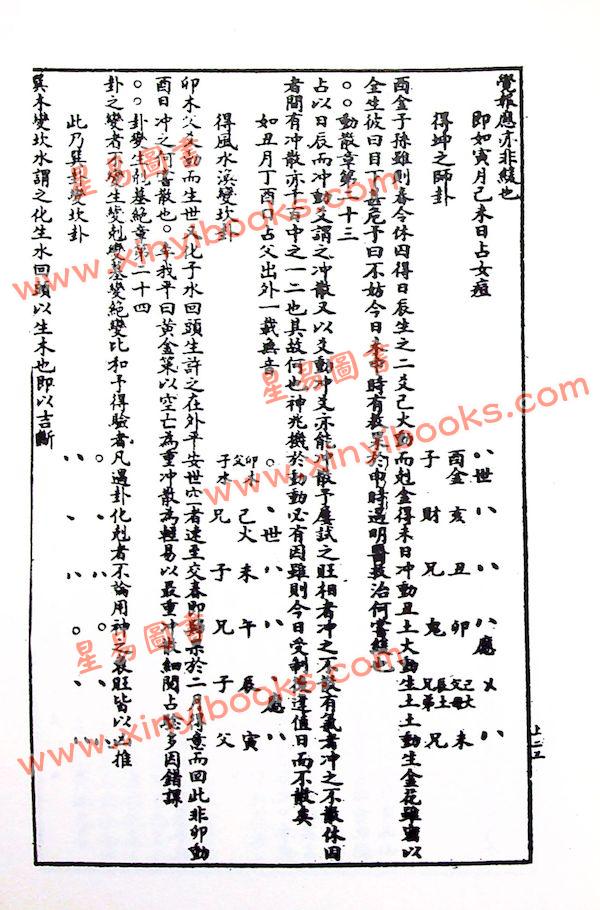 覺報應亦非緩也
即如寅月己未日占女痘
得坤之師卦
世 應
酉金 亥 丑 卯 巳火 未
子 財 兄 鬼 父母 兄
辰土
兄弟
酉金子孫雖則春令休囚得日辰生之二爻巳火動而剋金得未日冲動丑土火動生土土動生金花雖密以
全生彼曰目下甚危予曰不妨今日申時有救果於申時遇明醫救治何嘗緩也
○○動散章第二十三
占以日辰而冲動爻謂之冲散又以爻動冲爻亦能冲散予屢試之旺相者冲之不散有氣者冲之不散休囚
者間有冲散亦千百中之一二也其故何也神兆機於動動必有因雖則今日受制後逢值日而不散矣
如丑月丁酉日占父出外一載無音
得風水渙變坎卦
世 應
卯木 巳火 未 午 辰 寅
父 兄 子 兄 子 父
子水
卯木父爻動而生世又化子水回頭生許之在外平安世空者速至交春即歸果於二月得意而回此非卯動
酉日冲之何嘗散也○李我平曰黃金策以空亡為重冲散為輕易以最重冲散細閱占驗多因錯誤
○○卦變生剋墓絕章第二十四
卦之變者有變生變剋變墓變絕變比和予得驗者凡遇卦化剋者不論用神之衰旺皆以凶推
此乃巽卦變坎卦
巽木變坎水謂之化生水回頭以生木也即以吉斷
上二五
星易圖書
www.xinyibooks.com
www.xinyibooks.com
星易圖書
www.xinyibooks.com
星易圖書
www.xinyibooks.com